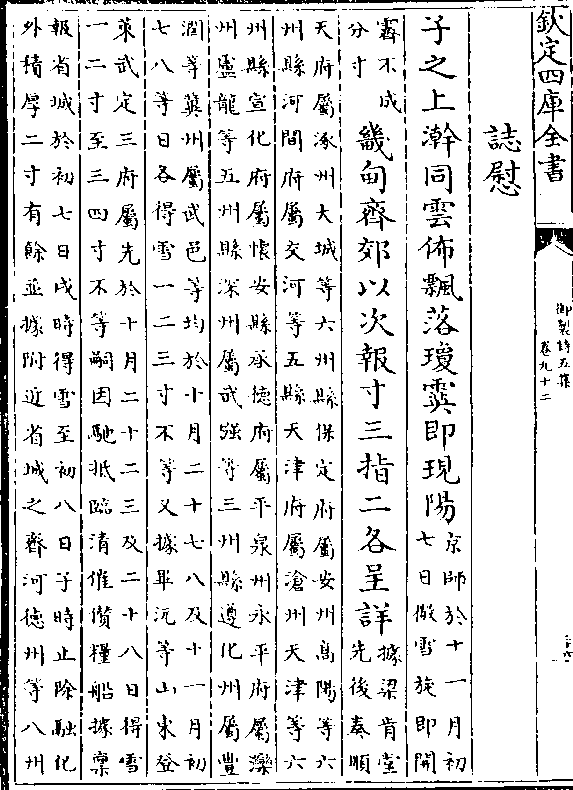 欽定四庫全書
御製詩五集
卷九十二
誌慰
子之上瀚同雲佈飄落瓊霙即現陽
京師於十一月初
七日微雪旋即開
霽不成
分寸
畿甸齊郊以次報寸三指二各呈詳
據梁肯堂
先後奏順
天府屬涿州大城等六州縣保定府屬安州高陽等六
州縣河間府屬交河等五縣天津府屬滄州天津等六
州縣宣化府屬懷安縣承德府屬平泉州永平府屬灤
州盧龍等五州縣深州屬武强等三州縣遵化州屬豐
潤等冀州屬武邑等均於十月二十七八及十一月初
七八等日各得雪一二三寸不等又據畢沅等山東登
萊武定三府屬先於十月二十二三及二十八日得雪
一二寸至三四寸不等嗣因馳抵臨清催儧糧船據稟
報省城於初七日戌時得雪至初八日子時止除融化
外積厚二寸有餘並據附近省城之齊河德州等八州